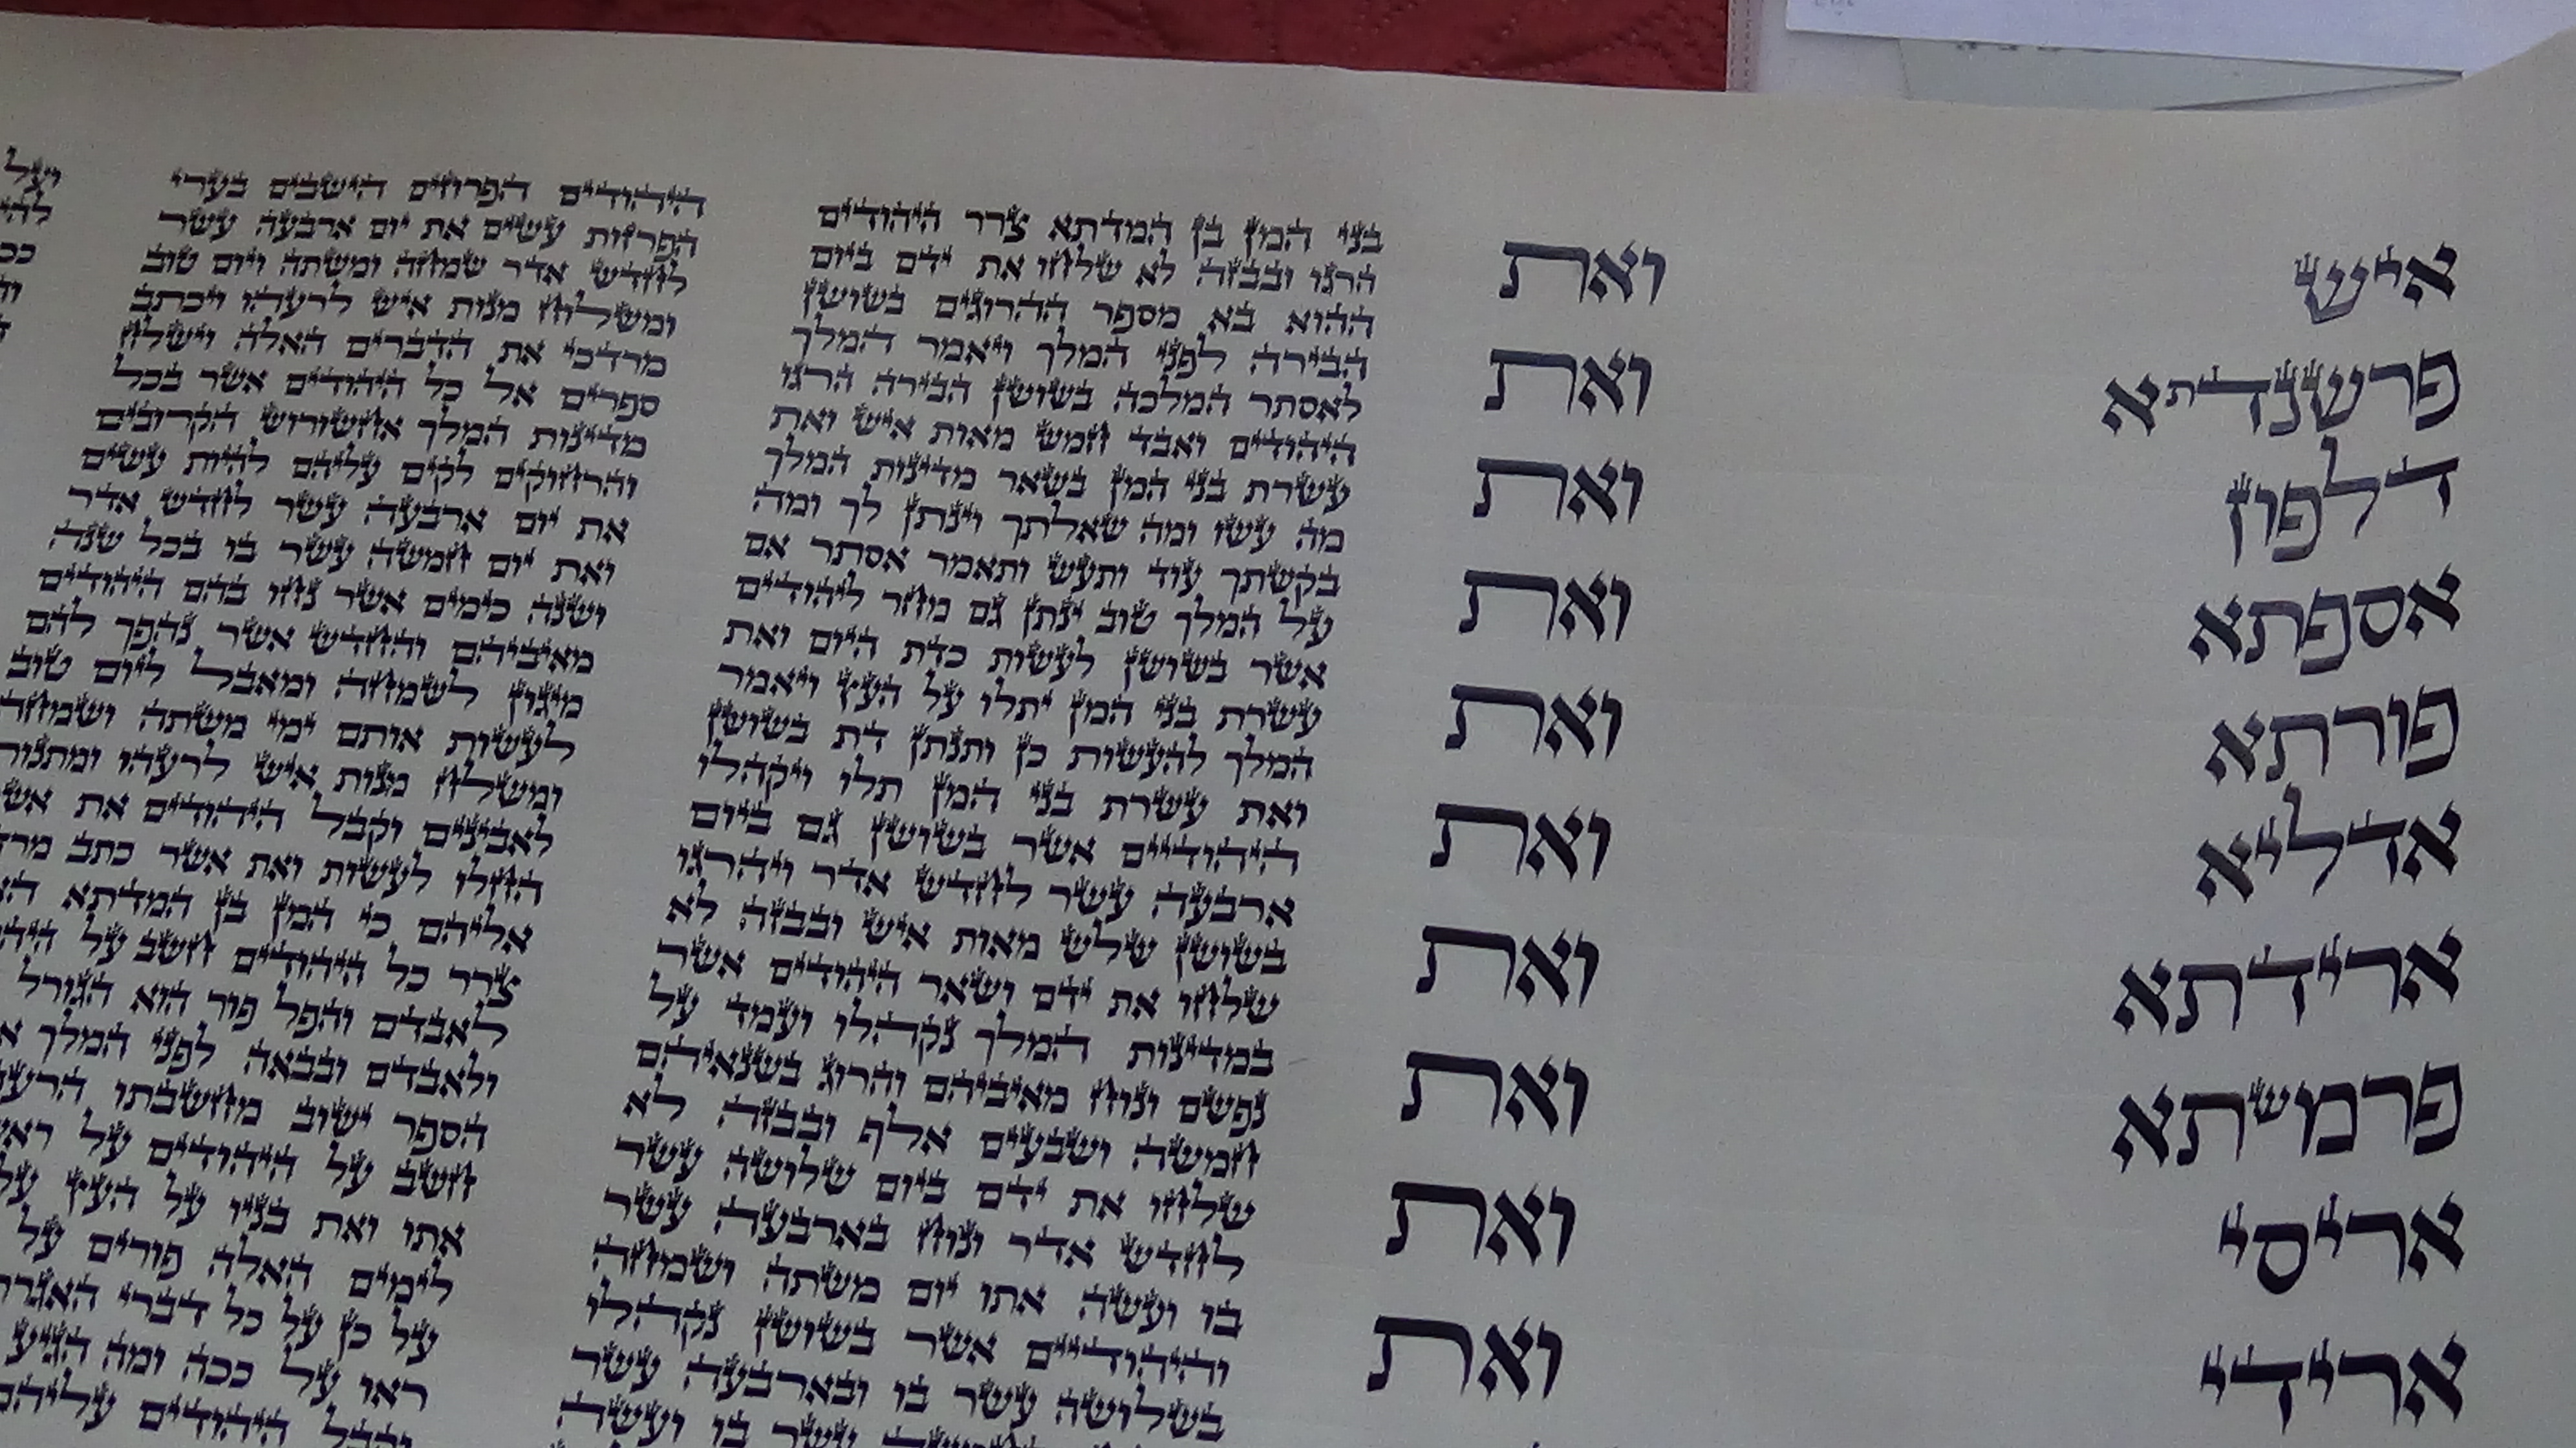 איש ואת
פרשנדתא ואת
דלפון ואת
אספתא ואת
פורתא ואת
אדליא ואת
ארידתא ואת
פרמשתא ואת
אריסי ואת
ארידי ואת
בני המן בן המדתא צרר היהודים
הרגו ובבזה לא שלחו את ידם ביום
ההוא בא מספר ההרוגים בשושן
הבירה לפני המלך ויאמר המלך
לאסתר המלכה בשושן הבירה הרגו
היהודים ואבד חמש מאות איש ואת
עשרת בני המן בשאר מדינות המלך
מה עשו ומה שאלתך וינתן לך ומה
בקשתך עוד ותעש ותאמר אסתר אם
על המלך טוב ינתן גם מחר ליהודים
אשר בשושן לעשות כדת היום ואת
עשרת בני המן יתלו על העץ ויאמר
המלך להעשות כן ותנתן דת בשושן
ואת עשרת בני המן תלו ויקהלו
היהודיים אשר בשושן גם ביום
ארבעה עשר לחדש אדר ויהרגו
בשושן שלש מאות איש ובבזה לא
שלחו את ידם ושאר היהודים אשר
במדינות המלך נקהלו ועמד על
נפשם ונוח מאיביהם והרוג בשנאיהם
חמשה ושבעים אלף ובבזה לא
שלחו את ידם ביום שלושה עשר
לחדש אדר ונוח בארבעה עשר
בו ועשה אתו יום משתה ושמחה
והיהודיים אשר בשושן נקהלו
בשלושה עשר בו ובארבעה עשר
עשר בו ועשה
היהודים הפרוזים הישבים בערי
הפרזות עשים את יום ארבעה עשר
לחדש אדר שמחה ומשתה ויום טוב
ומשלוח מנות איש לרעהו ויכתב
מרדכי את הדברים האלה וישלח
ספרים אל כל היהודים אשר בכל
מדינות המלך אחשורוש הקרובים
והרחוקים לקים עליהם להיות עשים
את יום ארבעה עשר לחדש אדר
ואת יום חמשה עשר בו בכל שנה
ושנה כימים אשר נחו בהם היהודים
מאיביהם והחדש אשר נהפך להם
מיגון לשמחה ומאבל ליום טוב
לעשות אותם ימי משתה ושמחה
ומשלוח מנות איש לרעהו ומתנות
לאביונים וקבל היהודים את אשר
החלו לעשות ואת אשר כתב מרד
אליהם כי המן בן המדתא
צרר כל היהודים חשב על היה
לאבדם והפל פור הוא הגורל
ולאבדם ובבאה לפני המלך
הספר ישוב מחשבתו הרעה
חשב על היהודים על ראש
אתו ואת בניו על העץ על
לימים האלה פורים על
על כן על כל דברי האגרת
ראו על ככה ומה הגיע
וקבל היהודים עליהם